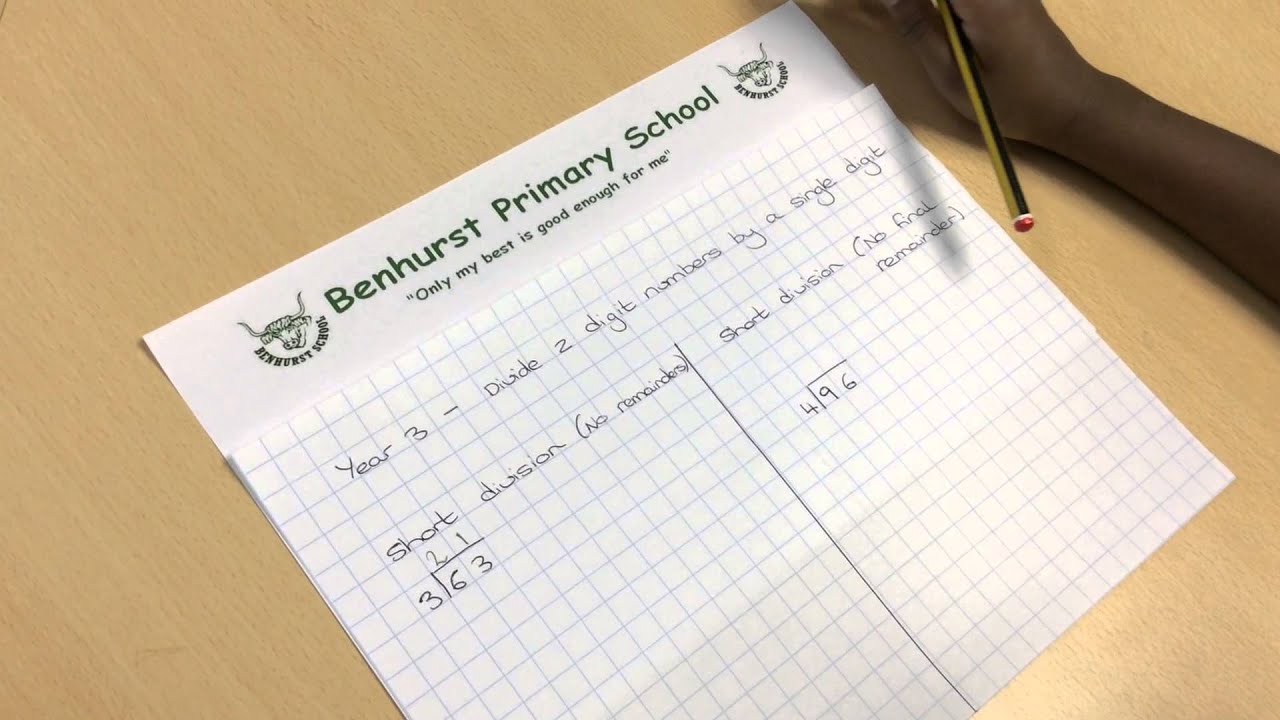 Benhurst Primary School
"Only my best is good enough for me"
BENHURST SCHOOL
BENHURST SCHOOL
Year 3 - Divide 2 digit numbers by a single digit
Short division (No remainders)
2 1
3 63
Short division (No final
remainder)
4 96